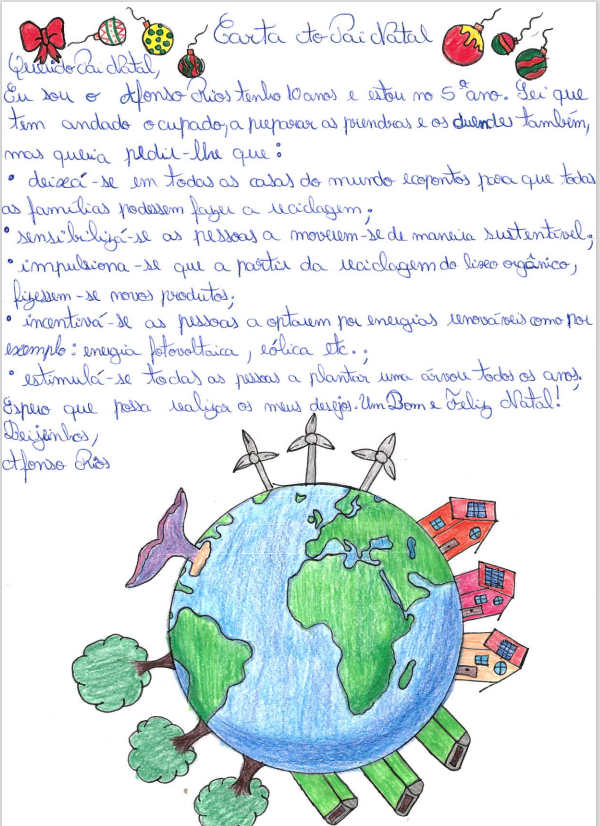 Carta ao Pai Natal
Querido Pai Natal,
Eu sou o Afonso Rios tenho 10 anos e estou no 5º ano. Sei que
tem andado ocupado, a preparar as prendras e os duendes também,
mas queria pedir-lhe que:
• deixá-se em todas as casas do mundo ecopontos para que todas
as famílias podessem fazer a reciclagem;
• sensibilizá-se as pessoas a moverem-se de maneira sustentível;
• impulsiona-se que a partir da reciclagem do lixo orgânico,
fizessem-se novos produtos;
• incentivá-se as pessoas a optarem por energias renováveis como por
exemplo: energia fotovoltaica, eólica etc.;
• estimulá-se todas as pessoas a plantar uma árvore todos os anos.
Espero que possa realizar os meus desejos. Um Bom e Feliz Natal!
Beijinhos,
Afonso Rios